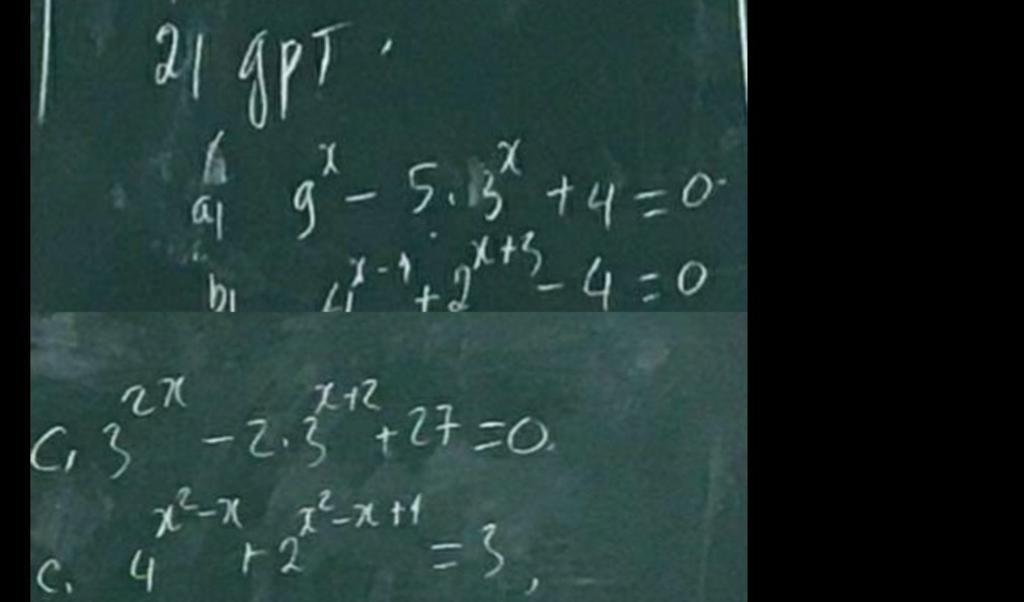 2| gpT.
a| 9^x - 5.3^x + 4 = 0
b| 4^{x-1} + 2^{x+3} - 4 = 0
C, 3^{2x} - 2.3^{x+2} + 27 = 0.
c. 4^{x^2-x} + 2^{x^2-x+1} = 3,